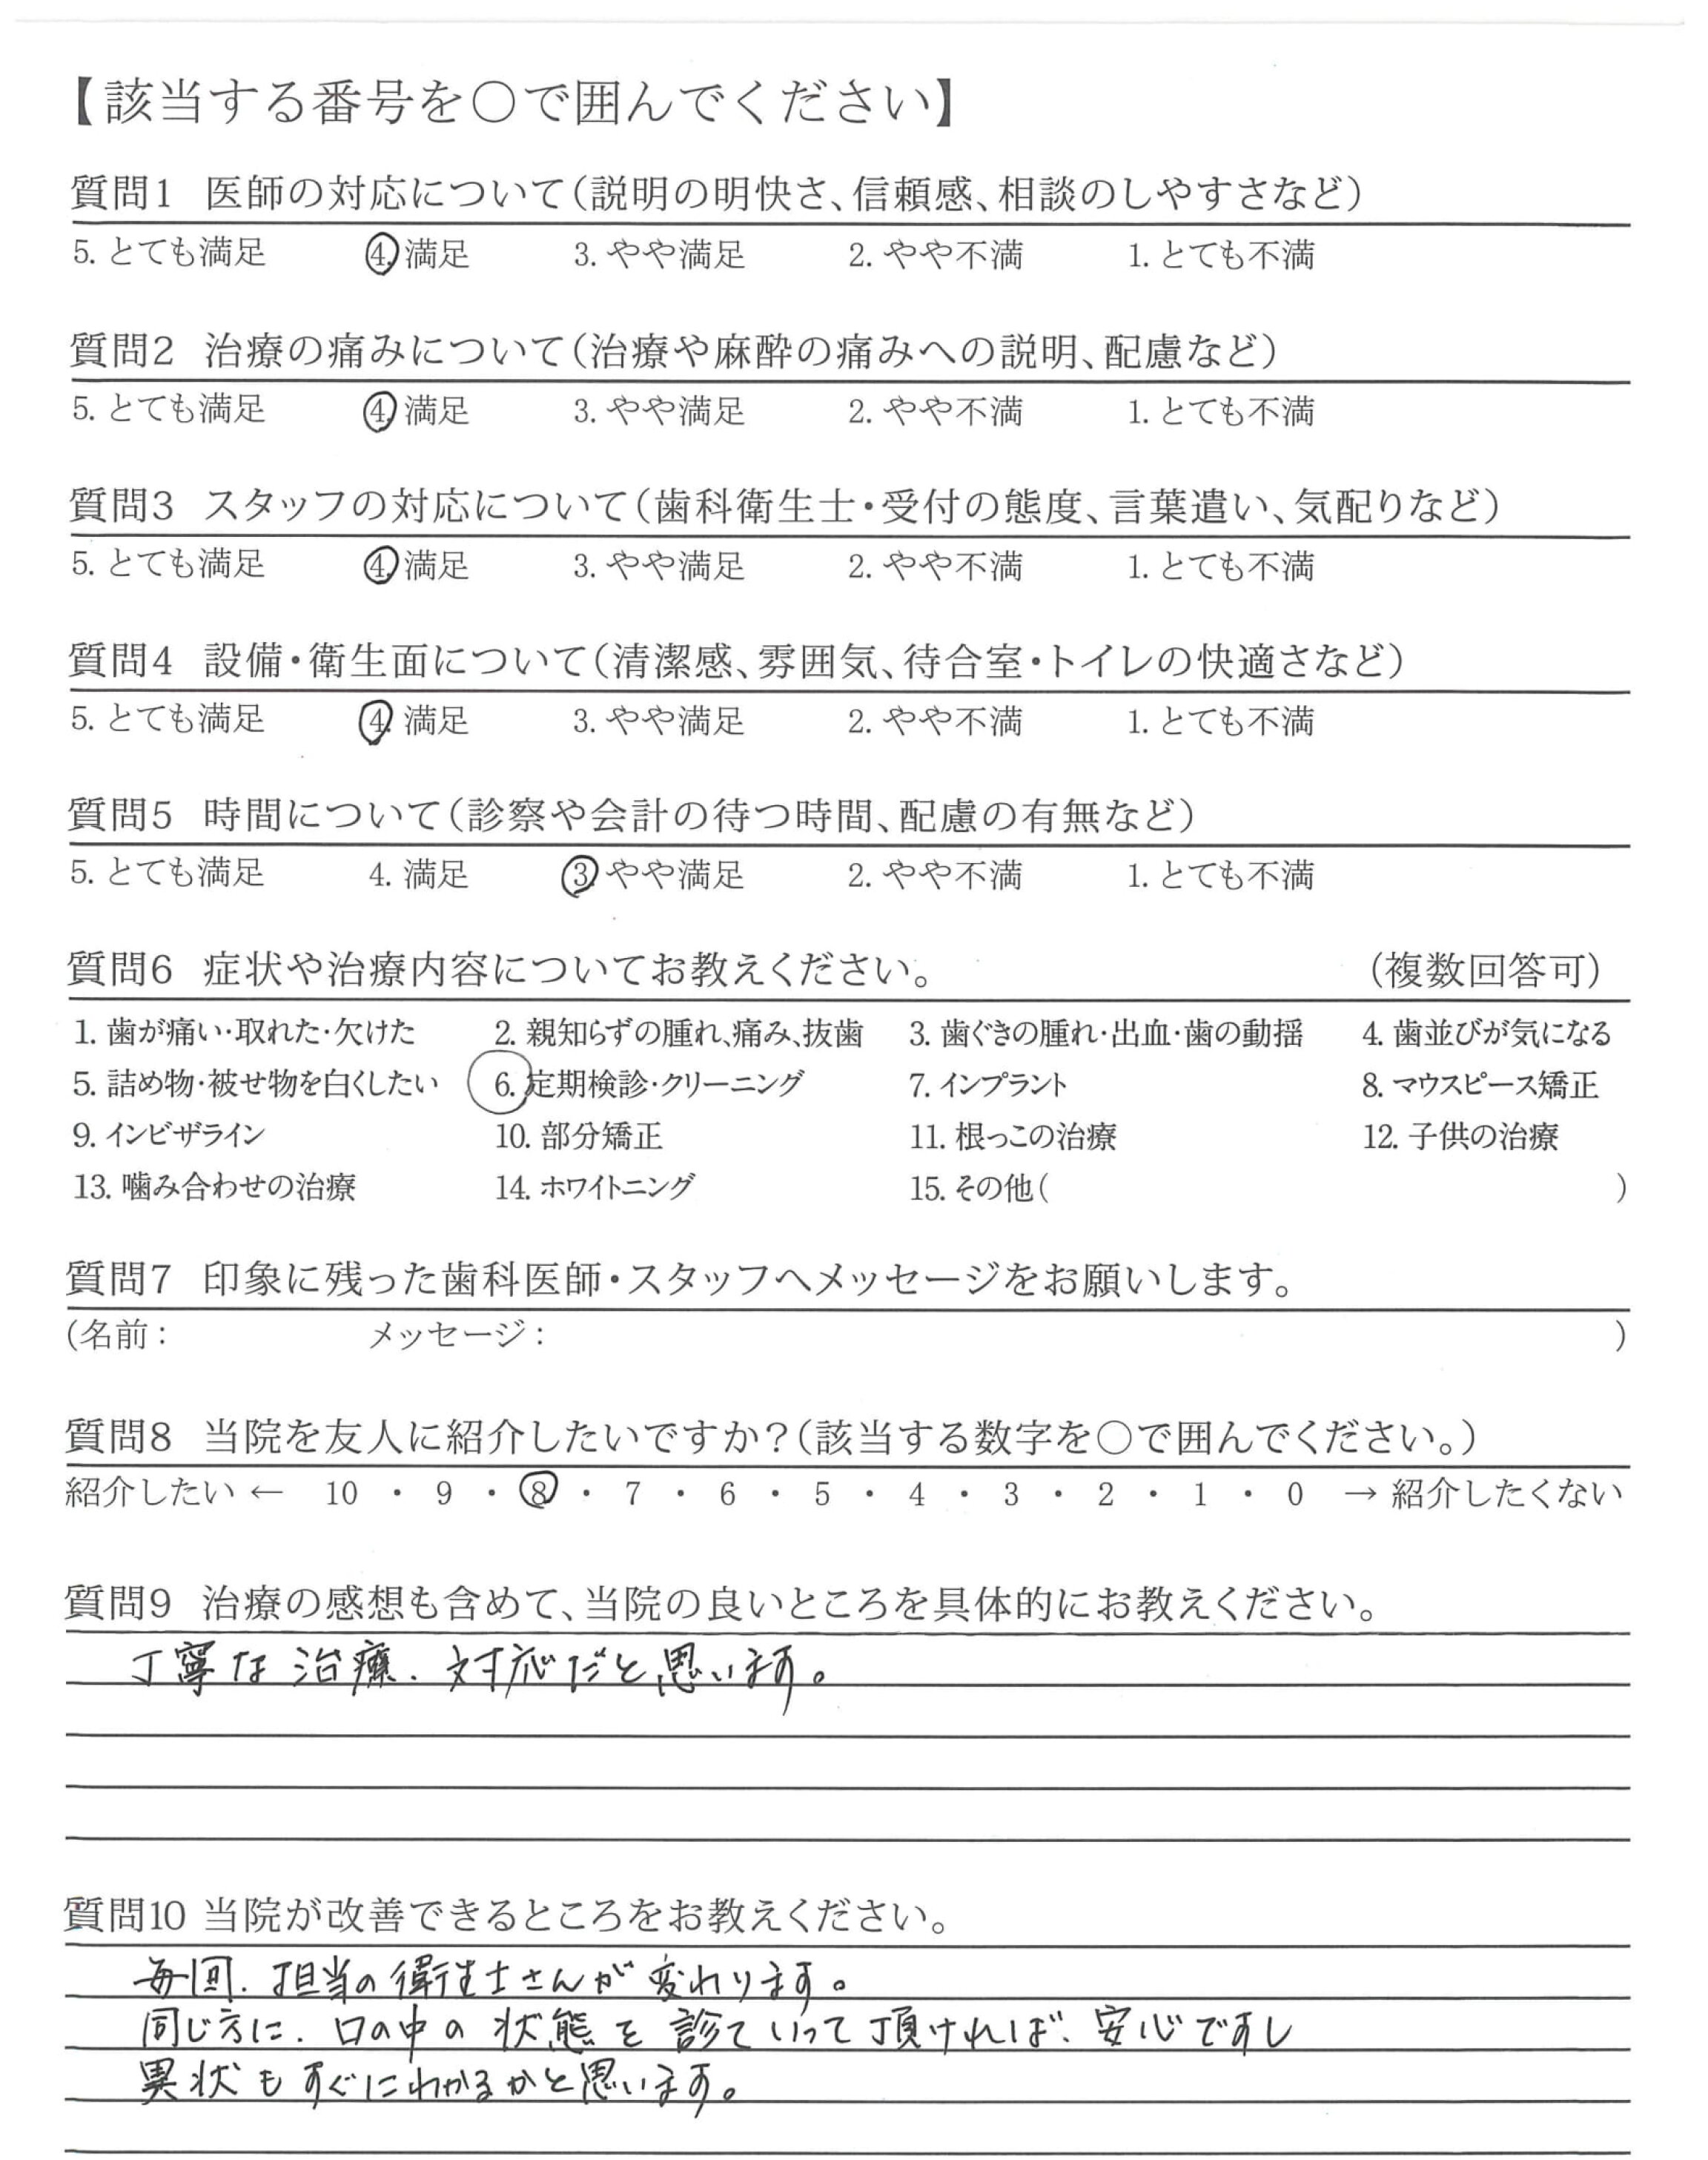 【該当する番号を〇で囲んでください】
質問1 医師の対応について（説明の明快さ、信頼感、相談のしやすさなど）
5. とても満足 4. 満足 3. やや満足 2. やや不満 1. とても不満
質問2 治療の痛みについて（治療や麻酔の痛みへの説明、配慮など）
5. とても満足 4. 満足 3. やや満足 2. やや不満 1. とても不満
質問3 スタッフの対応について（歯科衛生士・受付の態度、言葉遣い、気配りなど）
5. とても満足 4. 満足 3. やや満足 2. やや不満 1. とても不満
質問4 設備・衛生面について（清潔感、雰囲気、待合室・トイレの快適さなど）
5. とても満足 4. 満足 3. やや満足 2. やや不満 1. とても不満
質問5 時間について（診察や会計の待つ時間、配慮の有無など）
5. とても満足 4. 満足 3. やや満足 2. やや不満 1. とても不満
質問6 症状や治療内容についてお教えください。 （複数回答可）
1. 歯が痛い・取れた・欠けた 2. 親知らずの腫れ、痛み、抜歯 3. 歯ぐきの腫れ・出血・歯の動揺 4. 歯並びが気になる
5. 詰め物・被せ物を白くしたい 6. 定期検診・クリーニング 7. インプラント 8. マウスピース矯正
9. インビザライン 10. 部分矯正 11. 根っこの治療 12. 子供の治療
13. 噛み合わせの治療 14. ホワイトニング 15. その他（ ）
質問7 印象に残った歯科医師・スタッフへメッセージをお願いします。
（名前： メッセージ： ）
質問8 当院を友人に紹介したいですか？（該当する数字を〇で囲んでください。）
紹介したい ← 10 ・ 9 ・ 8 ・ 7 ・ 6 ・ 5 ・ 4 ・ 3 ・ 2 ・ 1 ・ 0 → 紹介したくない
質問9 治療の感想も含めて、当院の良いところを具体的にお教えください。
丁寧な治療、対応だと思います。
質問10 当院が改善できるところをお教えください。
毎回、担当の衛生士さんが変わります。
同じ方に、口の中の状態を診ていって頂ければ、安心ですし
異状もすぐにわかるかと思います。